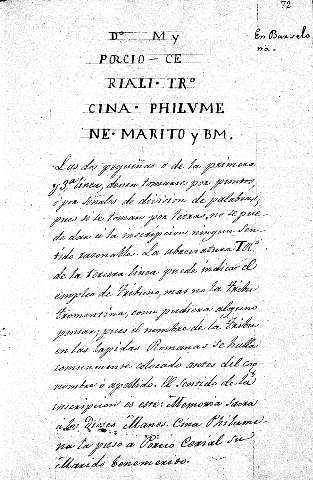 72
En Barcelo
na.
Dº M y
PORCIO - CE
RIALI · TRº
CINA · PHILUME
NE · MARITO y BM.
Las dos pequeñas o de la primera
y 3ª linea, deven tomarse por puntos,
ó por señales de division de palabras,
pues si se toman por letras, no se pue
de dar á la inscripcion ningun sen
tido razonable. La abreviatura TRº.
de la tercera linea puede indicar el
empleo de Tribuno, mas no la tribu
Tromentina, como pudiera alguno
pensar; pues el nombre de la Tribu
en las lapidas Romanas se halla
comunmente colocado antes del cog
nombre ó apellido. El sentido de la
inscripcion es este: Memoria sacra
a los Dioses Manes. Cina Philume
na la puso á Porcio Cerial su
Marido benemerito.